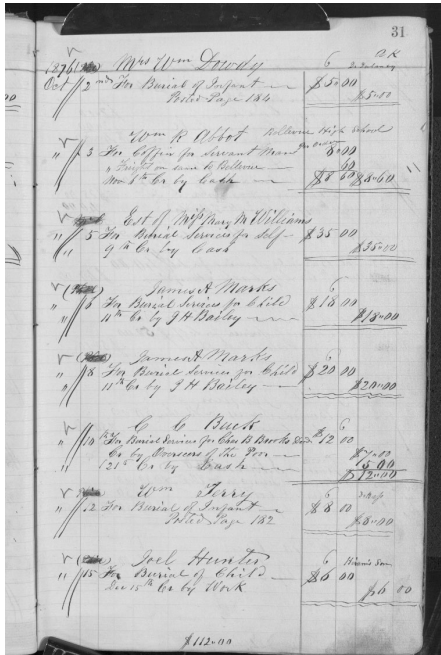 31
1876 Mrs Wm Dowdy 6
Oct 2nd For Burial of Infant $5.00
Posted Page 184 $5.00
Wm R Abbot Bellevue High School
" 3 For Coffin for Servant Man 8.00
" Freight on same to Bellevue 60
Nov 8th Cr by Cash $8 60 $8.60
Est of Miss Mary M Williams
" 5 For Burial Services for Self $35 00
9th Cr by Cash $35.00
James A Marks 6
" 6 For Burial Services for Child $18 00
11th Cr by J H Bailey $18.00
James A Marks 6
" 8 For Burial Services for Child $20 00
11th Cr by J H Bailey $20.00
C C Buck 6
" 10th For Burial Service for Chas B Brooks $12 00
Cr by Overseers of the Poor $7.00
21st Cr by Cash 5 00
$12.00
Wm Terry 6
" 12 For Burial of Infant $8 00
Posted Page 182 $8.00
Joel Hunter 6
" 15 For Burial of Child $6 00
Dec 15th Cr by Work $6 00
$112.00